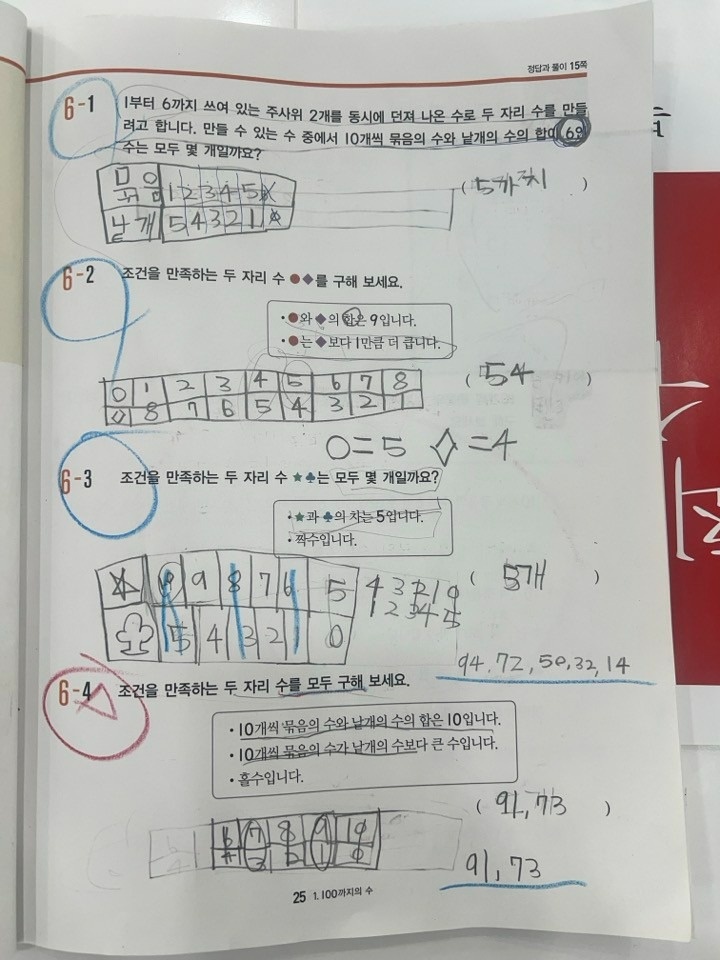 정답과 풀이 15쪽
6-1 1부터 6까지 쓰여 있는 주사위 2개를 동시에 던져 나온 수로 두 자리 수를 만들
려고 합니다. 만들 수 있는 수 중에서 10개씩 묶음의 수와 낱개의 수의 합이 6인
수는 모두 몇 개일까요?
묶음 1 2 3 4 5
( 5가지 )
낱개 5 4 3 2 1
6-2 조건을 만족하는 두 자리 수 ●◆를 구해 보세요.
• ●와 ◆의 합은 9입니다.
• ●는 ◆보다 1만큼 더 큽니다.
0 1 2 3 4 5 6 7 8
8 7 6 5 4 3 2 1
( 54 )
○=5 ◇=4
6-3 조건을 만족하는 두 자리 수 ★♣는 모두 몇 개일까요?
• ★과 ♣의 차는 5입니다.
• 짝수입니다.
☆ 9 8 7 6 5 4 3 2 1 0
♧ 5 4 3 2 1 0 1 2 3 4 5
( 5개 )
94, 72, 50, 32, 14
6-4 조건을 만족하는 두 자리 수를 모두 구해 보세요.
• 10개씩 묶음의 수와 낱개의 수의 합은 10입니다.
• 10개씩 묶음의 수가 낱개의 수보다 큰 수입니다.
• 홀수입니다.
( 91, 73 )
7 8 9 10
3 1
91, 73
25 1. 100까지의 수